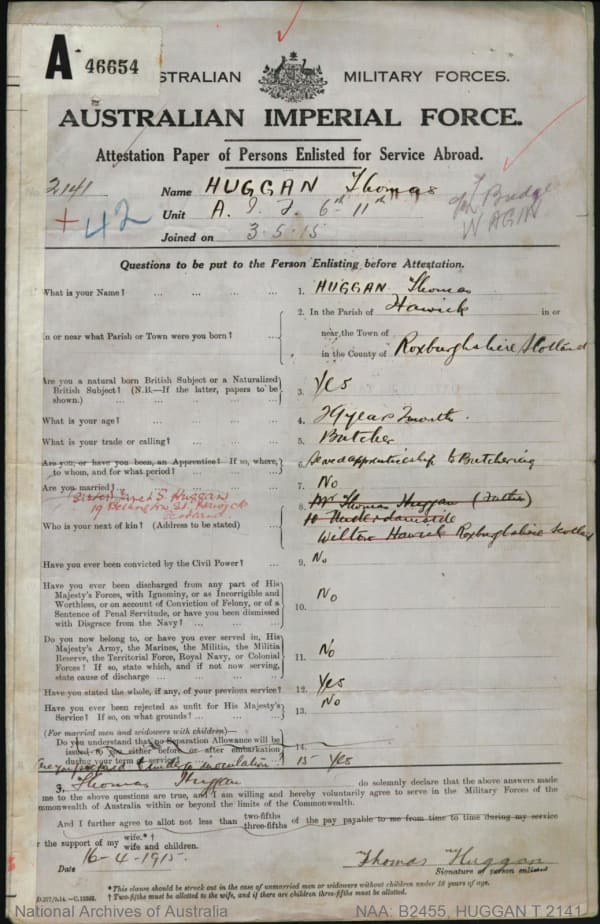 A 46654
AUSTRALIAN MILITARY FORCES.
AUSTRALIAN IMPERIAL FORCE.
Attestation Paper of Persons Enlisted for Service Abroad.
2141
Name HUGGAN Thomas
+42
Unit A. I. F. 6th 11th
Bridge
WAGIN
Joined on 3.5.15
Questions to be put to the Person Enlisting before Attestation.
What is your Name? ... ... ... ... 1. HUGGAN Thomas
2. In the Parish of Hawick in or
In or near what Parish or Town were you born? ... near the Town of
in the County of Roxburghshire Scotland
Are you a natural born British Subject or a Naturalized British Subject? (N.B.—If the latter, papers to be shown.) ... 3. Yes
What is your age? ... ... ... 4. 29 years 7 month
What is your trade or calling? ... ... 5. Butcher
Are you, or have you been, an Apprentice? If so, where, to whom, and for what period? ... 6. Served apprenticeship to Butchering
Are you married? 7. No
Huggan
19
Who is your next of kin? (Address to be stated) ... 8. Mr Thomas Huggan (Father)
10
Wilton Hawick Roxburghshire Scotland
Have you ever been convicted by the Civil Power? ... 9. No
Have you ever been discharged from any part of His Majesty's Forces, with Ignominy, or as Incorrigible and Worthless, or on account of Conviction of Felony, or of a Sentence of Penal Servitude, or have you been dismissed with Disgrace from the Navy? ... 10. No
Do you now belong to, or have you ever served in, His Majesty's Army, the Marines, the Militia, the Militia Reserve, the Territorial Force, Royal Navy, or Colonial Forces? If so, state which, and if not now serving, state cause of discharge ... 11. No
Have you stated the whole, if any, of your previous service? 12. Yes
Have you ever been rejected as unfit for His Majesty's Service? If so, on what grounds? ... 13. No
(For married men and widowers with children)—
Do you understand that no Separation Allowance will be issued to you either before or after embarkation during your term of service? 14.
Are you prepared to undergo inoculation? 15 Yes
I, Thomas Huggan do solemnly declare that the above answers made
me to the above questions are true, and I am willing and hereby voluntarily agree to serve in the Military Forces of the
Commonwealth of Australia within or beyond the limits of the Commonwealth.
And I further agree to allot not less than two-fifths three-fifths of the pay payable to me from time to time during my service
for the support of my wife.*† wife and children.
Date 16-4-1915. Thomas Huggan
Signature of person enlisted
*This clause should be struck out in the case of unmarried men or widowers without children under 18 years of age.
† Two-fifths must be allotted to the wife, and if there are children three-fifths must be allotted.
National Archives of Australia NAA: B2455, HUGGAN T 2141